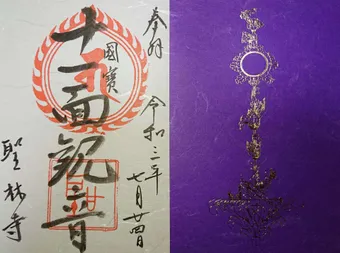 奉拝
令和三年
七月廿四日
國寶
十一面観音
聖林寺